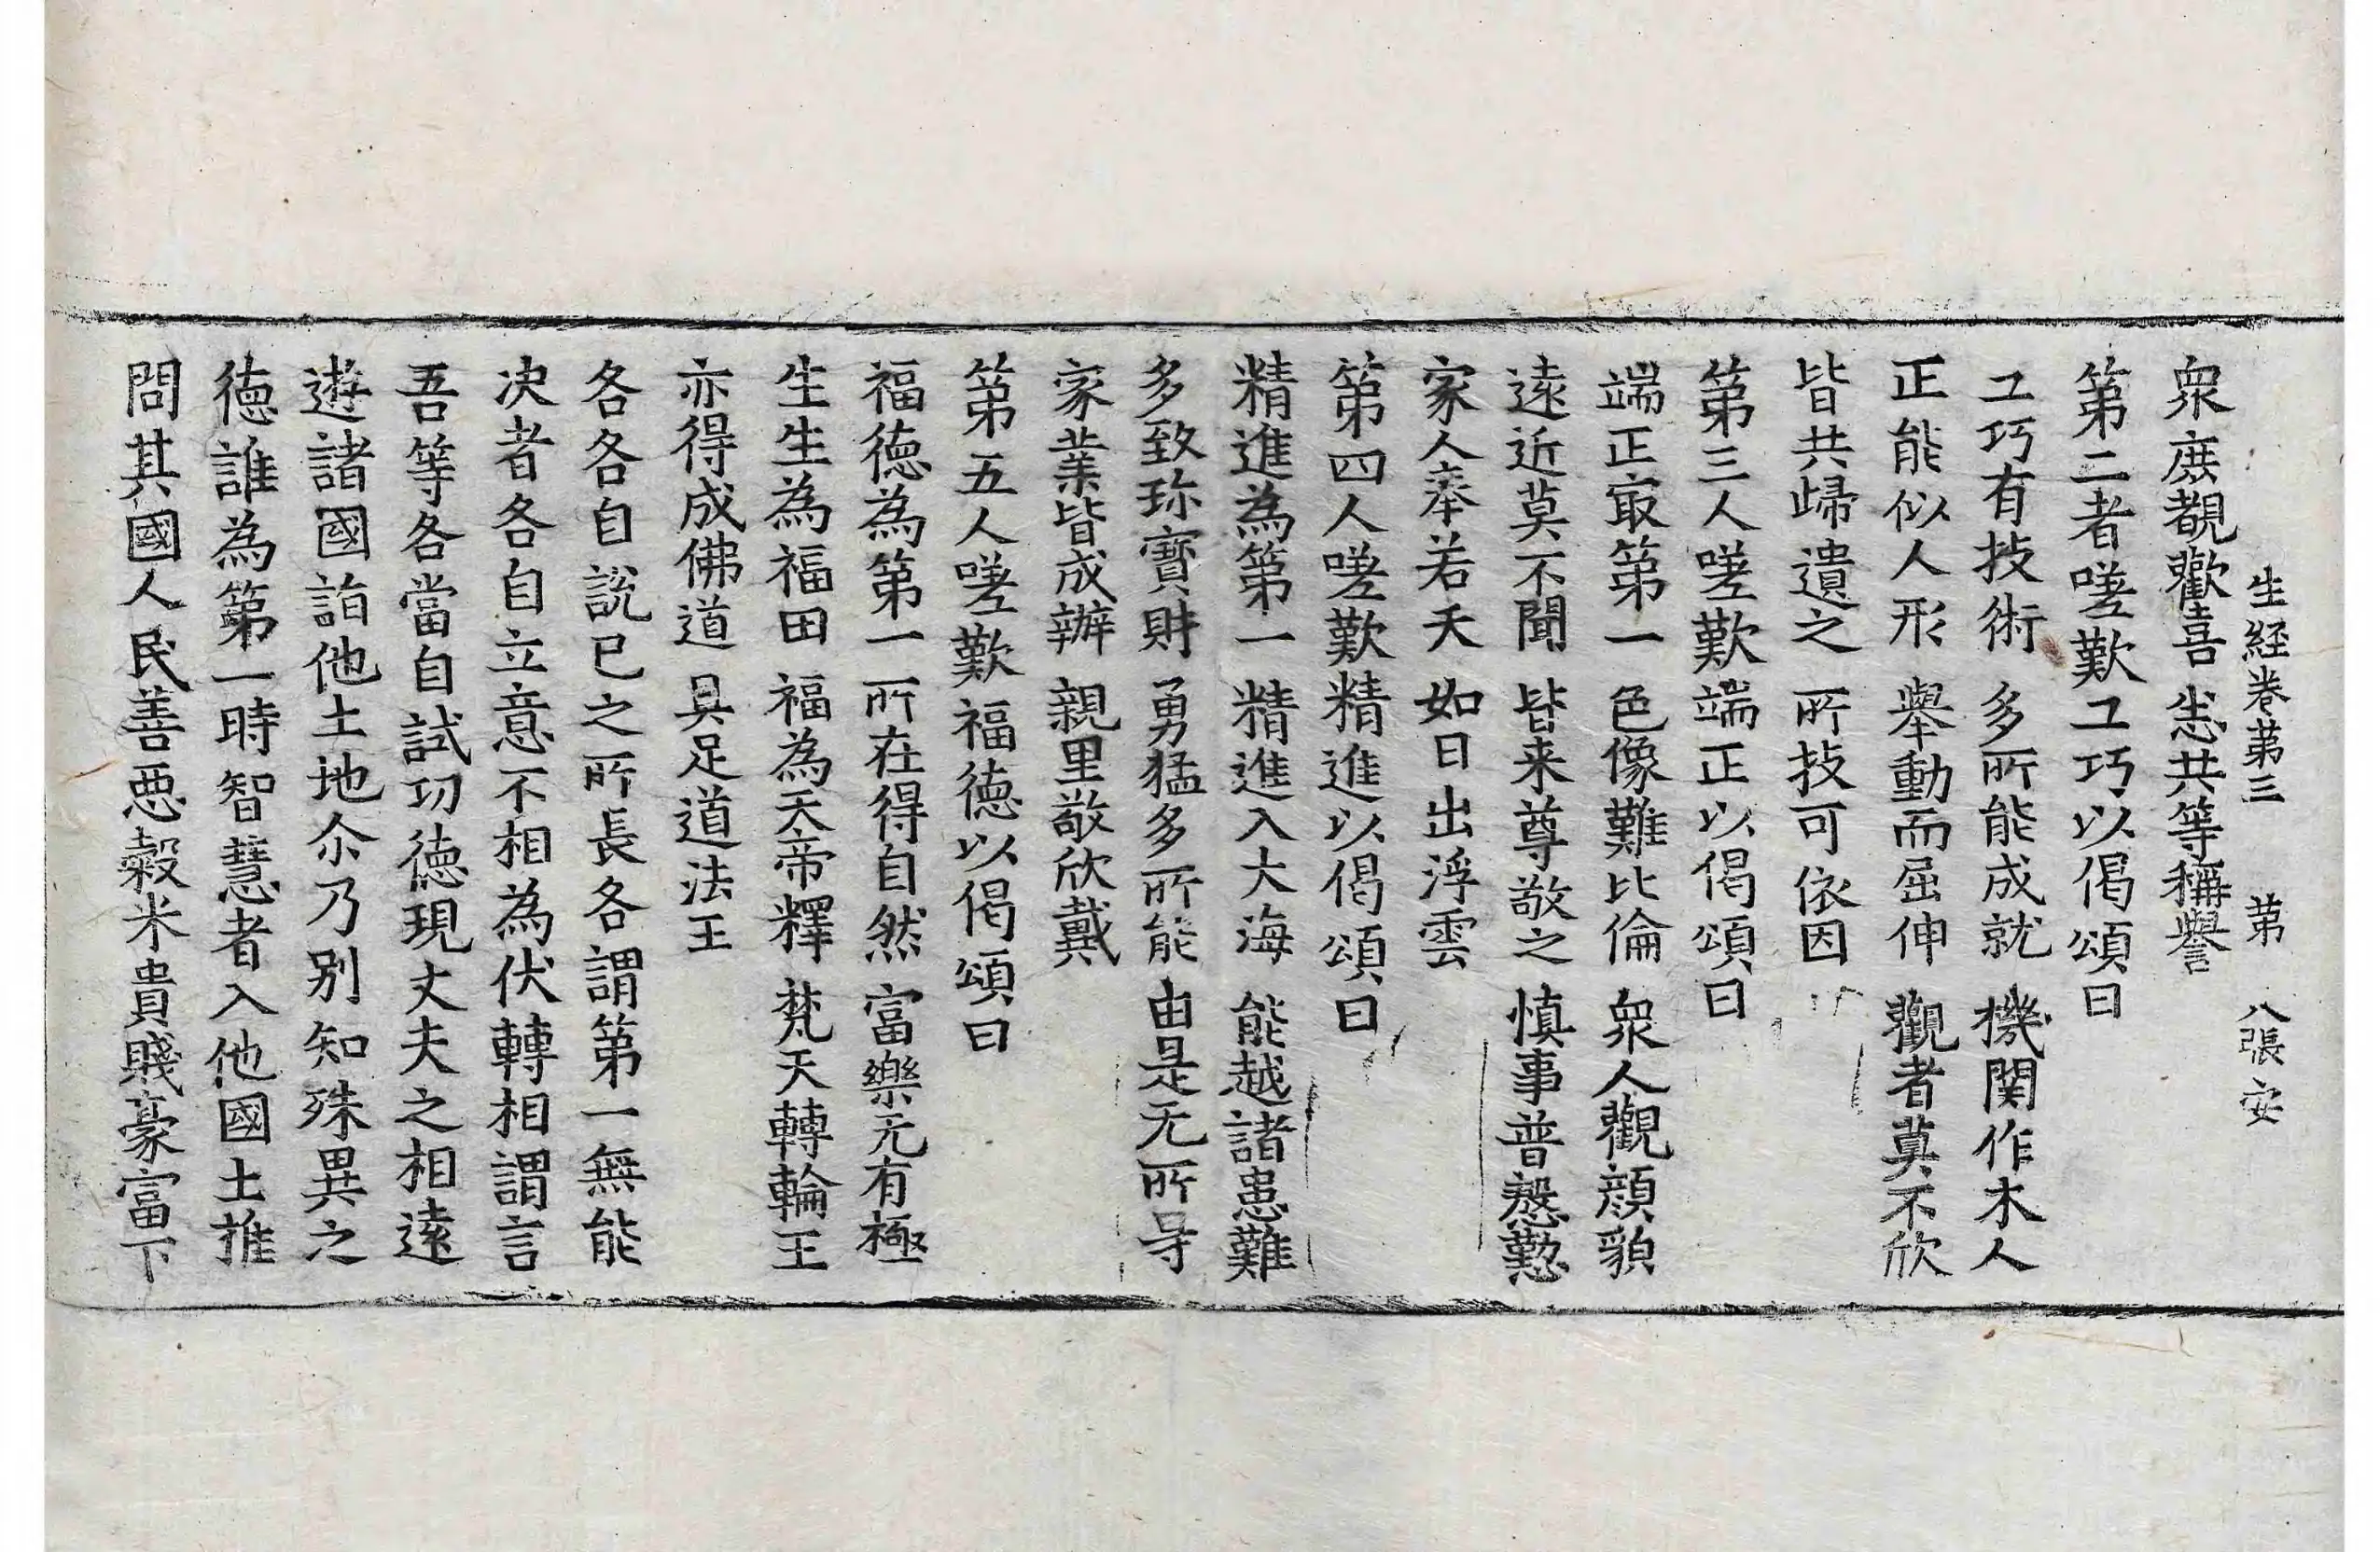 生經卷第三 第八張 安
衆庻覩歡喜 㤪共等稱譽
第二者嗟歎工巧以偈頌曰
工巧有技術 多所能成就 機関作木人
正能似人形 舉動而屈伸 觀者莫不欣
皆共歸遺之 所技可依因
第三人嗟歎端正以偈頌曰
端正㝡第一 色像難比倫 衆人觀顔貌
遠近莫不聞 皆来尊敬之 慎事普慇懃
家人奉若天 如日出浮雲
第四人嗟歎精進以偈頌曰
精進為第一 精進入大海 能越諸患難
多致珎寳財 勇猛多所能 由是无所㝵
家業皆成辦 親里敬欣戴
第五人嗟歎福德以偈頌曰
福德為第一 所在得自然 富樂无有極
生生為福田 福為天帝釋 梵天轉輪王
亦得成佛道 具足道法王
各各自說已之所長各謂第一無能
决者各自立意不相為伏轉相謂言
吾等各當自試功德現丈夫之相遠
遊諸國詣他土地尒乃别知殊異之
德誰為第一時智慧者入他國土推
問其國人民善惡榖米貴賤豪富下